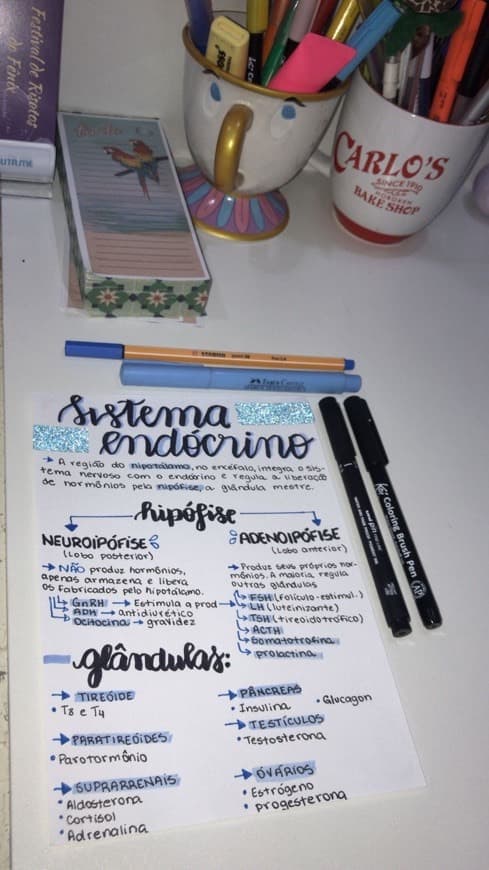 Festival de Regatas
do Fênix
CARLO'S
SINCE 1910
HOBOKEN
BAKE SHOP
STABILO
FABER-CASTELL
Coloring Brush Pen
Sistema
endócrino
→ A região do hipotálamo, no encéfalo, integra o sis-
tema nervoso com o endócrino e regula a liberação
de hormônios pela hipófise, a glândula mestre.
hipófise
NEUROIPÓFISE
(Lobo posterior)
→ NÃO produz hormônios,
apenas armazena e libera
os fabricados pelo hipotálamo.
GnRH → Estimula a prod
ADH → antidiurético
Ocitocina → gravidez
ADENOIPÓFISE
(Lobo anterior)
→ Produz seus próprios hor-
mônios. A maioria regula
outras glândulas
FSH (folículo-estimul.)
LH (luteinizante)
TSH (tireoidotrófico)
ACTH
Somatotrofina
prolactina
glândulas:
→ TIREÓIDE
• T3 e T4
→ PARATIREÓIDES
• Paratormônio
→ SUPRARRENAIS
• Aldosterona
• Cortisol
• Adrenalina
→ PÂNCREAS
• Insulina • Glucagon
→ TESTÍCULOS
• Testosterona
→ ÓVÁRIOS
• Estrógeno
• Progesterona